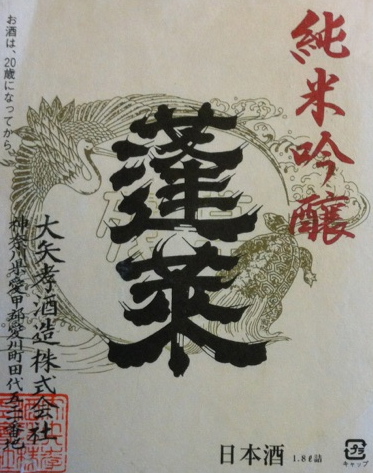 純米吟醸
蓬莱
お酒は、20歳になってから。
大矢孝酒造株式会社
神奈川県愛甲郡愛川町田代五二一番地
日本酒 1.8ℓ詰
プラ
キャップ